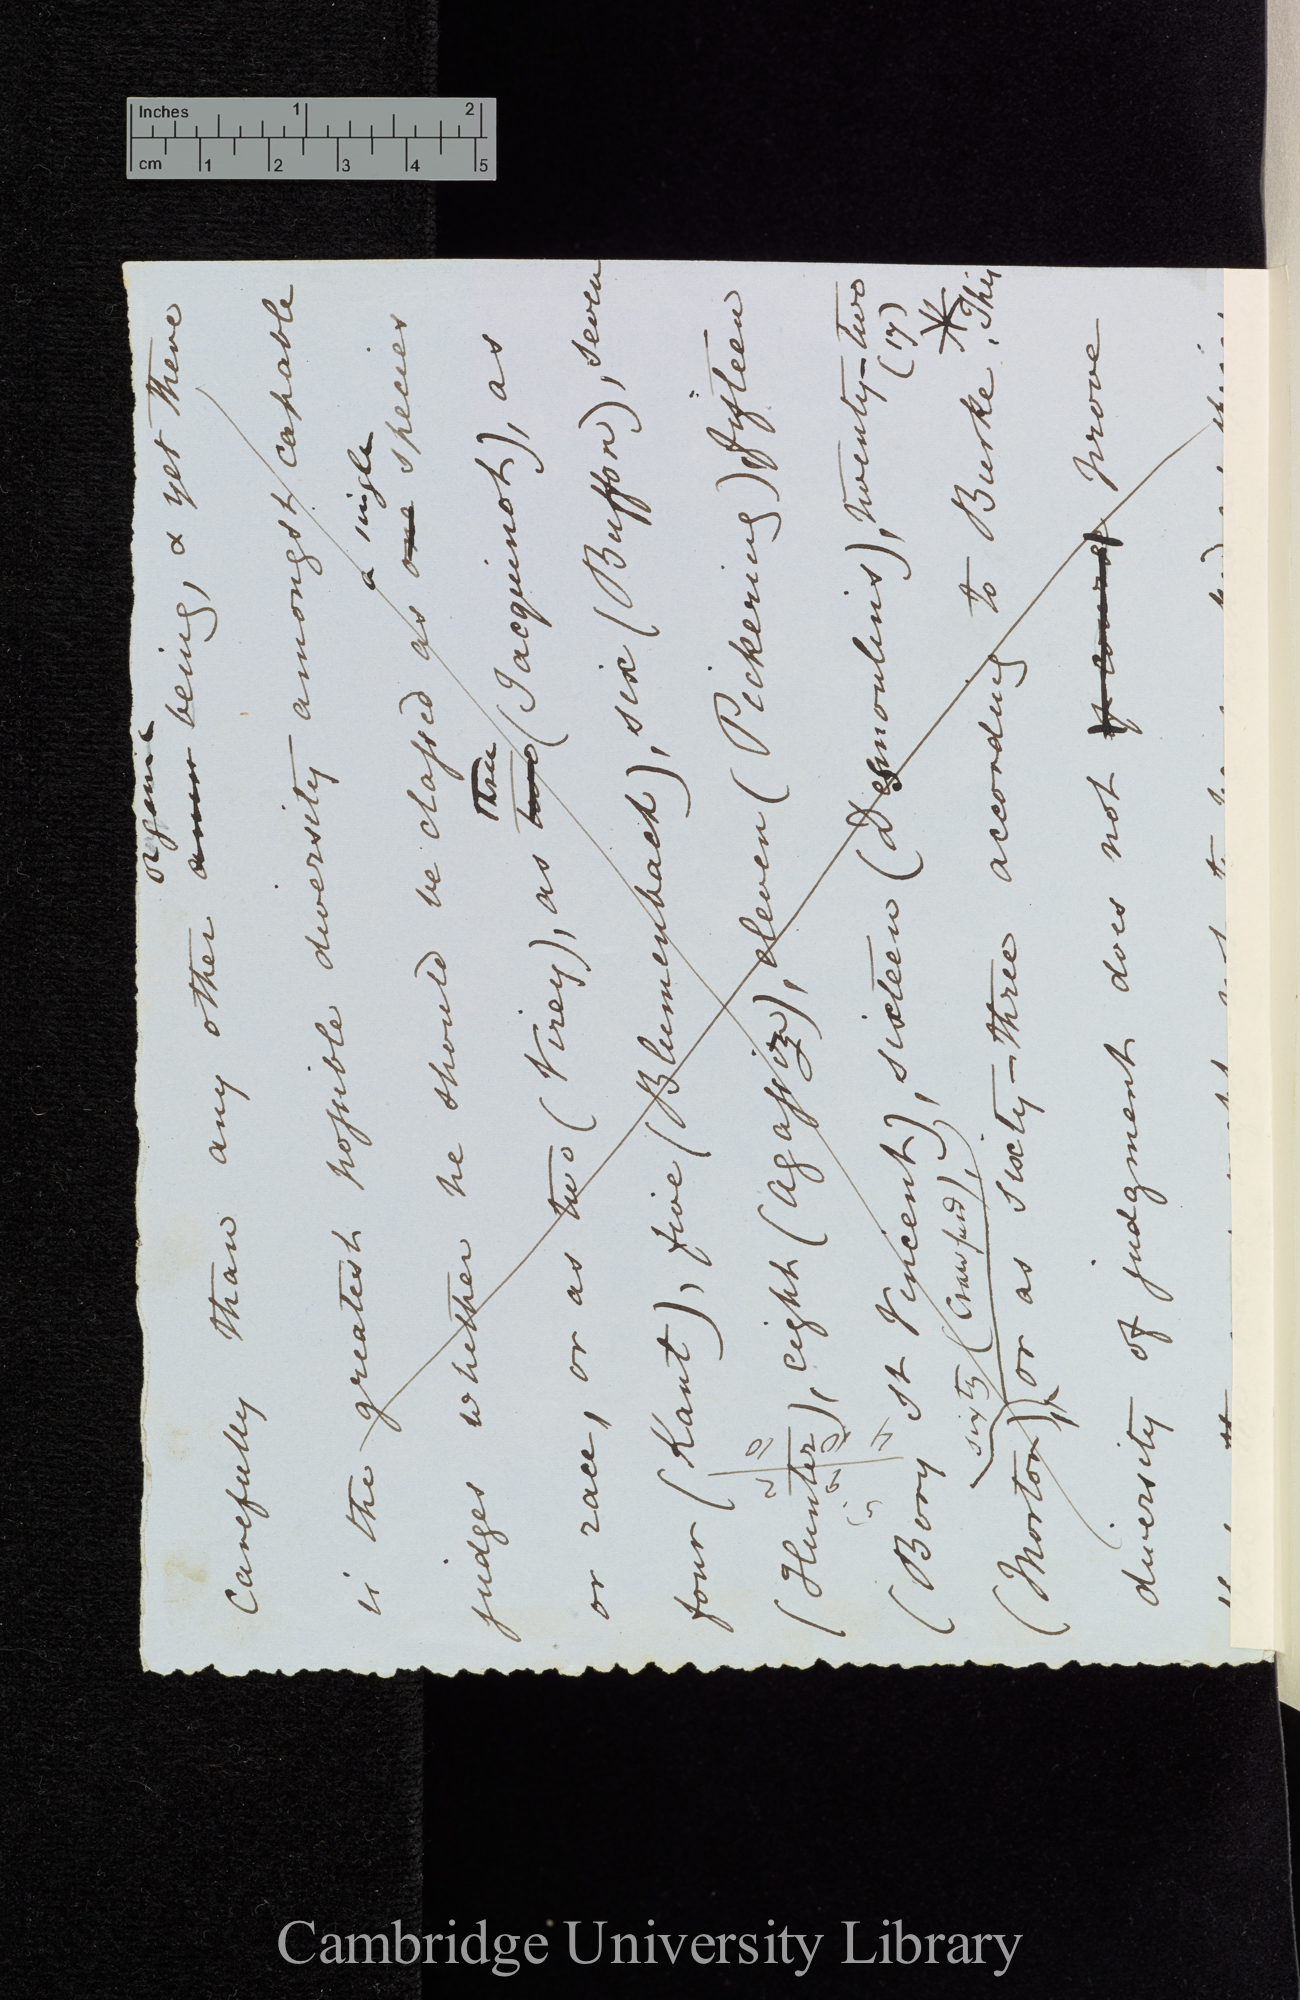 Inches 1 2
cm 1 2 3 4 5
organic
carefully than any other being, & yet there
is the greatest possible diversity amongst capable
a single
judges whether he should be classed as one species
three
or race, or as two (Virey), as two (Jacquinot), as
four (Kant), five (Blumenbach), six (Buffon), seven
(Hunter), eight (Agassiz), eleven (Pickering) fifteen
(Bory St Vincent), sixteen (Desmoulins), twenty-two
sixty (Crawfurd), (17)
(Morton), or as sixty-three according to Burke. This
diversity of judgment does not prove
Cambridge University Library